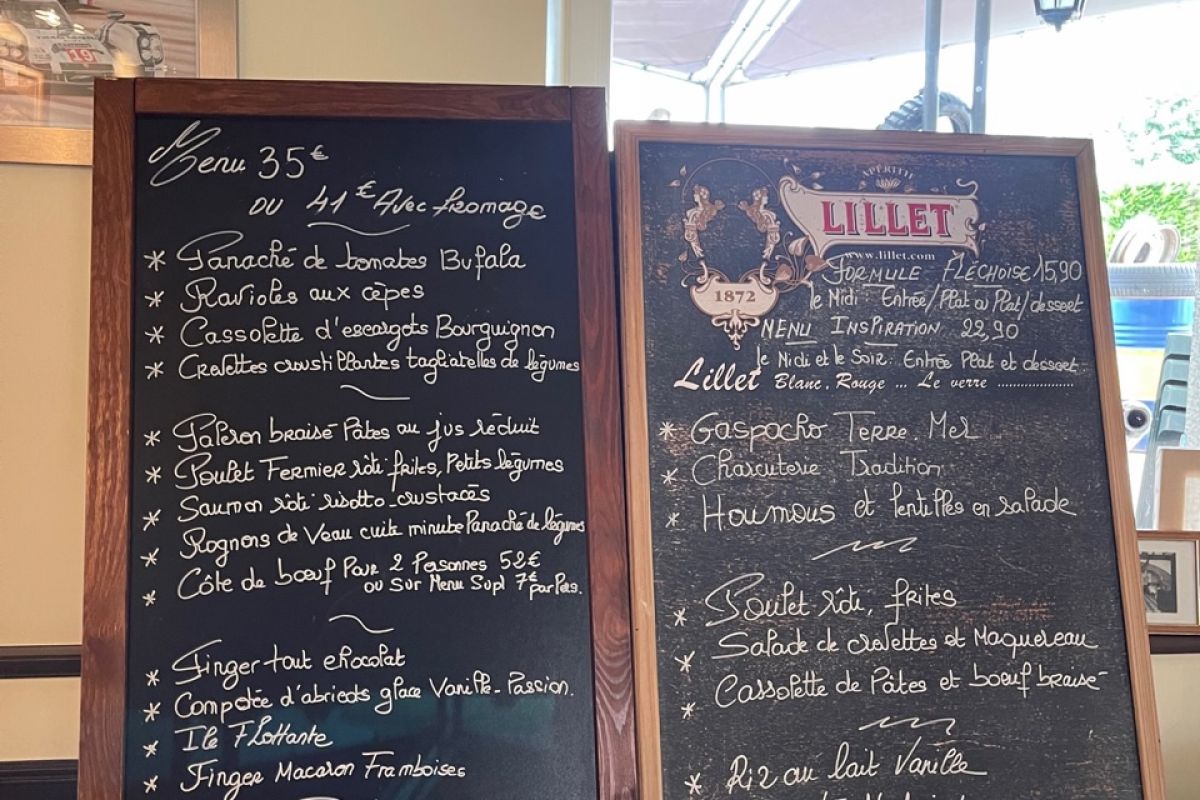 Menu 35€
ou 41€ Avec fromage
* Panaché de tomates Bufala
* Ravioles aux cèpes
* Cassolette d'escargots Bourguignon
* Crevettes croustillantes tagliatelles de légumes
* Paleron braisé Pâtes au jus réduit
* Poulet Fermier rôti frites, Petits légumes
* Saumon rôti risotto crustacés
* Rognons de Veau cuits minute Panaché de légumes
* Côte de boeuf Pour 2 Personnes 52€
ou Sur Menu Supl 7€ par Pers.
* Finger tout chocolat
* Compotée d'abricots glace Vanille-Passion.
* Ile Flottante
* Finger Macaron Framboises
APÉRITIF
LILLET
www.lillet.com
1872
FORMULE FLÉCHOISE 15,90
le Midi : Entrée/Plat ou Plat/dessert
MENU INSPIRATION 22,90
le Midi et le Soir : Entrée Plat et dessert
Lillet Blanc, Rouge ... Le verre ....................
* Gaspacho Terre. Mer
* Charcuterie Tradition
* Houmous et lentilles en salade
* Poulet rôti, frites
* Salade de crevettes et Maquereau
* Cassolette de Pâtes et boeuf braisé
* Riz au lait Vanille